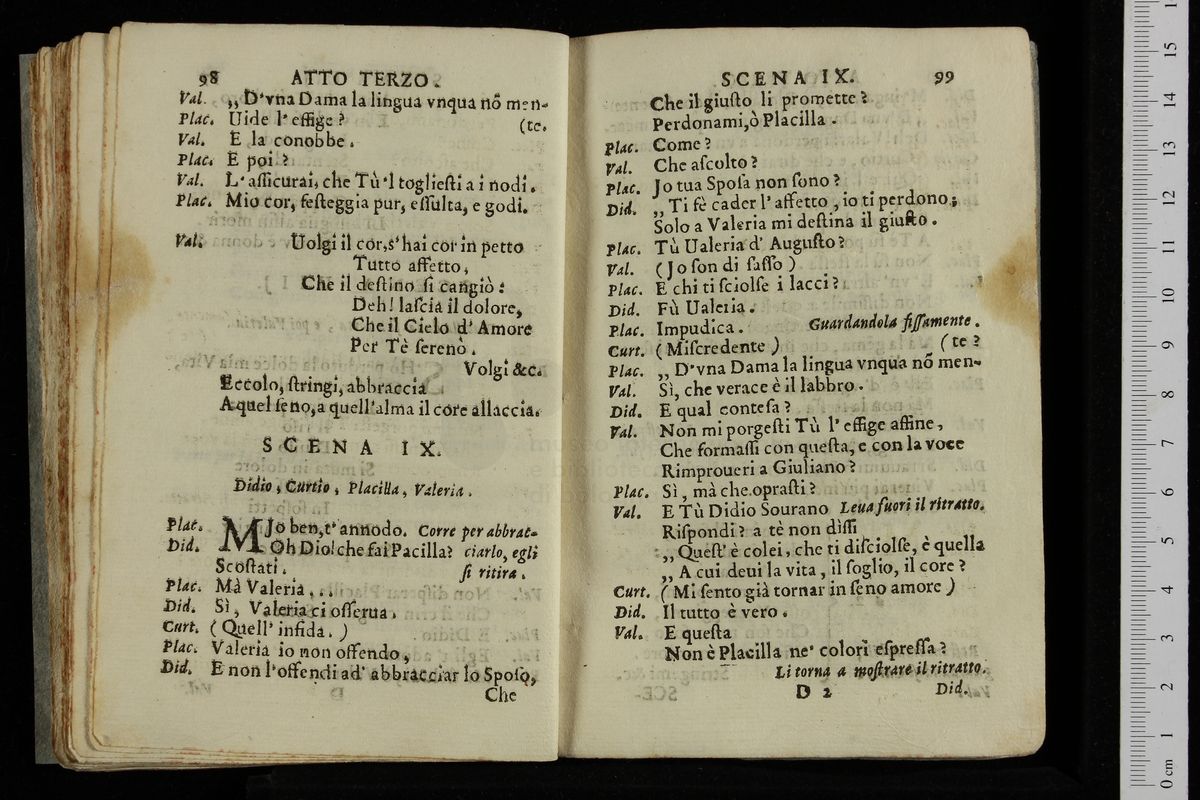 98 ATTO TERZO.
Val. „ D'vna Dama la lingua vnqua nõ men-
Plac. Uide l'effige? (te.
Val. E la conobbe.
Plac. E poi?
Val. L'assicurai, che Tù'l togliesti a i nodi.
Plac. Mio cor, festeggia pur, essulta, e godi.
Val. Uolgi il cor, s'hai cor in petto
Tutto affetto,
Che il destino si cangiò:
Deh! lascia il dolore,
Che il Cielo d'Amore
Per Tè serenò.
Volgi &c.
Eccolo, stringi, abbraccia
A quel seno, a quell'alma il core allaccia.
SCENA IX.
Didio, Curtio, Placilla, Valeria.
Plac. MIo ben, t'annodo. Corre per abbrac-
Did. Oh Dio! che fai Pacilla? ciarlo, egli
Scostati. si ritira.
Plac. Mà Valeria...
Did. Sì, Valeria ci osserua.
Curt. (Quell'infida.)
Plac. Valeria io non offendo,
Did. E non l'offendi ad abbracciar lo Sposo,
Che
SCENA IX. 99
Che il giusto li promette?
Perdonami, ò Placilla.
Plac. Come?
Val. Che ascolto?
Plac. Jo tua Sposa non sono?
Did. „ Ti fè cader l'affetto, io ti perdono;
Solo a Valeria mi destina il giusto.
Plac. Tù Ualeria d'Augusto?
Val. (Jo son di sasso)
Plac. E chi ti sciolse i lacci?
Did. Fù Ualeria.
Plac. Impudica. Guardandola fissamente.
Curt. (Miscredente) (te?
Plac. „ D'vna Dama la lingua vnqua nõ men-
Val. Sì, che verace è il labbro.
Did. E qual contesa?
Val. Non mi porgesti Tù l'effige affine,
Che formassi con questa, e con la voce
Rimproueri a Giuliano?
Plac. Sì, mà che oprasti?
Val. E Tù Didio Sourano Leua fuori il ritratto.
Rispondi? a tè non dissi
„ Quest'è colei, che ti disciolse, è quella
„ A cui deui la vita, il soglio, il core?
Curt. (Mi sento già tornar in seno amore)
Did. Il tutto è vero.
Val. E questa
Non è Placilla ne' colori espressa?
Li torna a mostrare il ritratto.
D 2 Did.